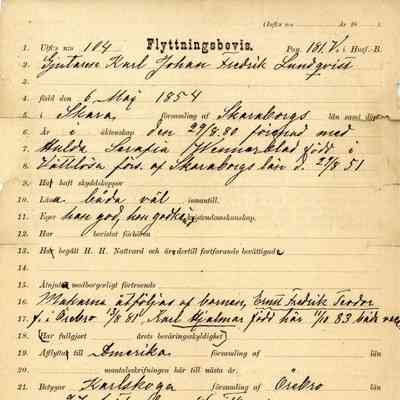 (Införd n:o År 18
1. Utfl:s n:o 104 Flyttningsbevis. Pag. 181. i Husf.-B.
2. Gjutaren Karl Johan Fredrik Lundqvist
3.
4. född den 6 Maj 1854
5. i Skara, församling af Skaraborgs län samt döpt
6. Är i äktenskap den 29/8.80 förenad med
7. Hulda Serafia Wennerblad född i
8. förs. af Skaraborgs län d. 29/8 51
9. Haf haft skyddskoppor
10. Läsa båda väl innantill.
11. Eger han god, hon godkänd kristendomskunskap.
12. Har bevistat förhören
13. Har begått H. H. Nattvard och är dertill fortfarande berättigad
14.
15. Åtnjuta medborgerligt förtroende
16. Makarna åtföljas af barnen, Ernst Fredrik Teodor
17. f. i Örebro 13/8 81, Karl Hjalmar född här 11/10 83 båda
18. (Har fullgjort årets beväringsskyldighet)
19. Afflyttat till Amerika församling af län
20. mantalsskrifningen här till nästa år.
21. Betygar Karlskoga församling af Örebro län